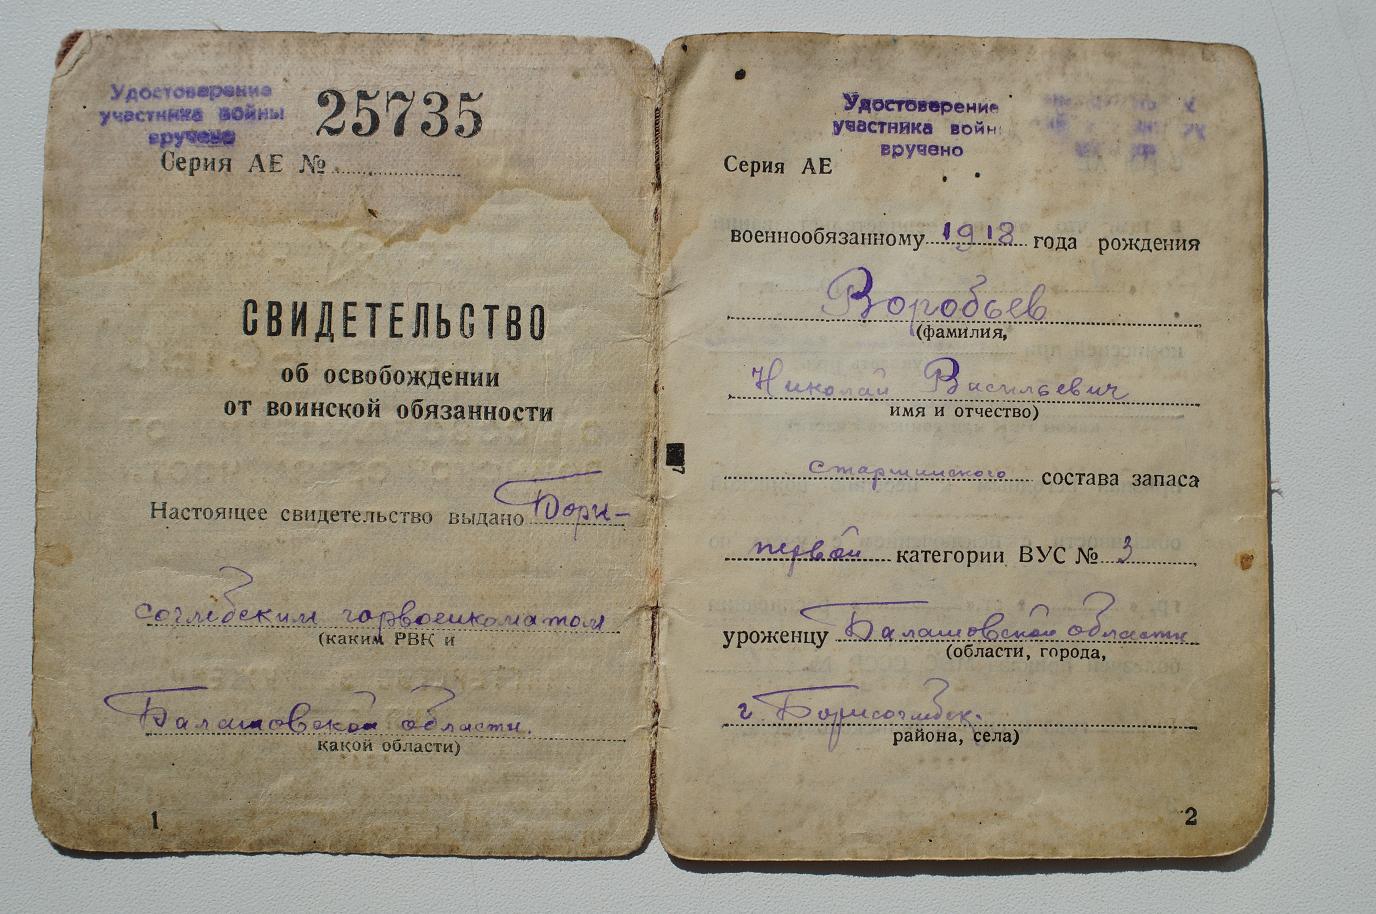 Удостоверение
участника войны
вручено
25735
Серия АЕ №
СВИДЕТЕЛЬСТВО
об освобождении
от воинской обязанности
Настоящее свидетельство выдано Бори-
соглебским горвоенкоматом
(каким РВК и
Балашовской области.
какой области)
1
Удостоверение
участника войны
вручено
Серия АЕ
военнообязанному 1918 года рождения
Воробьев
(фамилия,
Николай Васильевич
имя и отчество)
старшинского состава запаса
первой категории ВУС № 3
уроженцу Балашовской области
(области, города,
г Борисоглебск.
района, села)
2